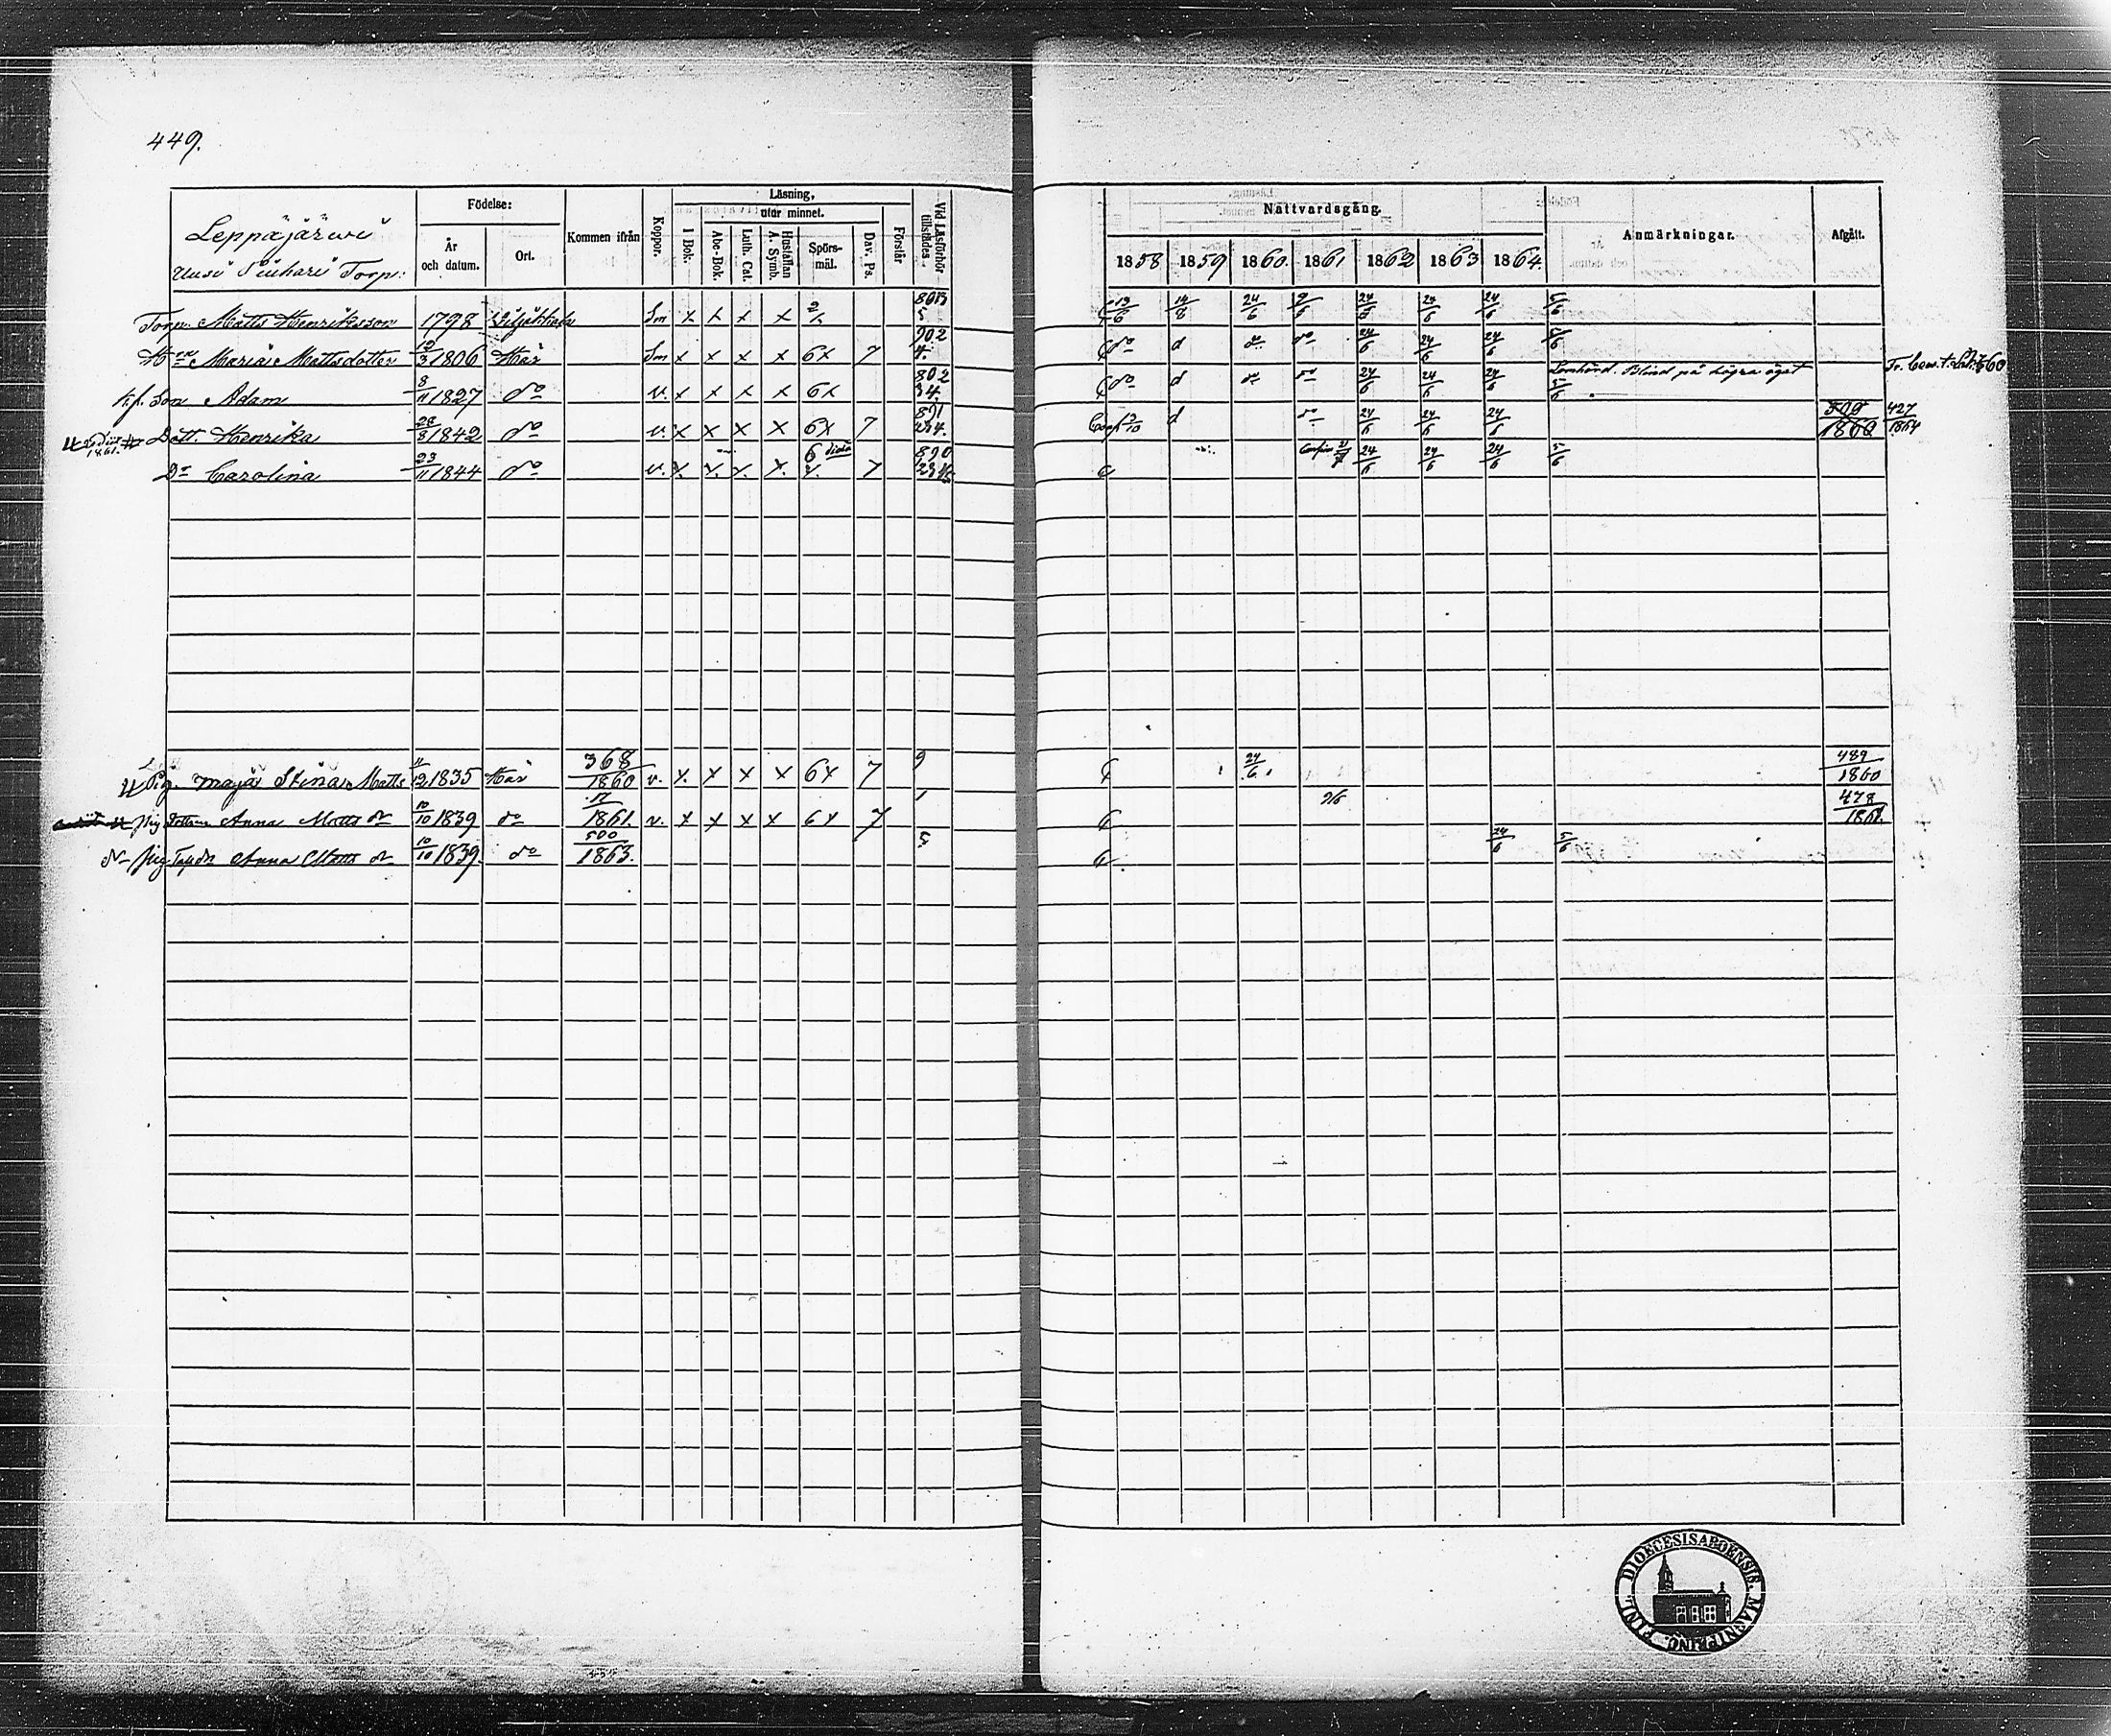 449.
Leppäjärwi
Uusi Torp:
Födelse:
År och datum.
Ort.
Kommen ifrån
Koppor.
Läsning,
utur minnet.
I Bok.
Abc-Bok.
Luth. Cat.
Hustaflan A. Symb.
Spörsmål.
Dav. Ps.
Förstår
Vid Läsförhör tillstädes.
Nattvardsgång.
1858 1859 1860. 1861 1862 1863 1864.
Anmärkningar.
Afgått.
Torp. Matts Henriksson 1798 Sm x x x x 19/6 14/8 24/6 24/6 24/6 24/6 5/6
Maria Mattsdotter 1806 Här Sm x x x x 6x 7 902 do d do do 24/6 24/6 24/6 5/6
Son Adam 8/11 1827 do v. x x x x 6x 802 34. do d do do 24/6 24/6 24/6 5/6 Blind på högra ögat
Dott. Henrika 28/8 1842 do v. x x x x 6x 7 891 d do 24/6 24/6 24/6 1860 427/1864
Do Carolina 23/11 1844 do v. x x x x 6 7 890 24/6 24/6 24/6 5/6
Pig. Maja Stina Matts 11/12 1835 Här 368/1860 v. x x x x 6x 7 9 24/6 489/1860
pig Anna Matts dr 10/10 1839 do 17/1861. v. x x x x 6x 7 1 478/1861.
pig Anna Matts dr 10/10 1839. do 500/1863. 5 24/6 5/6
DIOECESIS ABOENSIS. MAGNI PRINC. FINL.